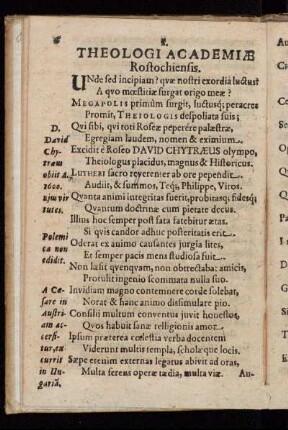 8.
THEOLOGI ACADEMIÆ
Rostochiensis.
UNde sed incipiam? quæ nostri exordia luctus?
A quo mœstitiæ surgat origo meæ?
MEGAPOLIS primùm surgit, luctusq; peracres
Promit, THEIOLOGIS despoliata suis;
Qui sibi, qui toti Roseæ peperére palæstræ,
Egregiam laudem, nomen & eximium.
Excidit è Roseo DAVID CHYTRÆUS olympo,
Theiologus placidus, magnus & Historicus.
LUTHERI sacro reverenter ab ore pependit
Audiit, & summos, Teq;, Philippe, Viros.
Quanta animi integritas fuerit, probitasq;, fidesq;
Quantum doctrinæ cum pietate decus.
Illius hoc semper post fata fatebitur ætas.
Si quis candor adhuc posteritatis erit.
Oderat ex animo causantes jurgia lites,
Et semper pacis mens studiosa fuit.
Non læsit quenquam, non obtrectabat: amicis,
Protulit ingenio scommata nulla suo.
Invidiam magno contemnere corde solebat,
Norat & hanc animo dissimulare pio.
Consilii multum conventus juvit honestos,
Quos habuit sanæ relligionis amor.
Ipsum præterea cœlestia verba docentem
Viderunt multis templa, scholæque locis.
Sæpe etenim externas legatus abivit ad oras,
Multa ferens operæ tædia, multa viæ.
Au-
D.
David
Chy-
træus
obiit A.
1600.
ejus vir
tutes.
Polemi
ca non
edidit.
A Cæ-
sare in
Austri-
am ac-
cersi-
tur, ex
currit
in Un-
gariã.